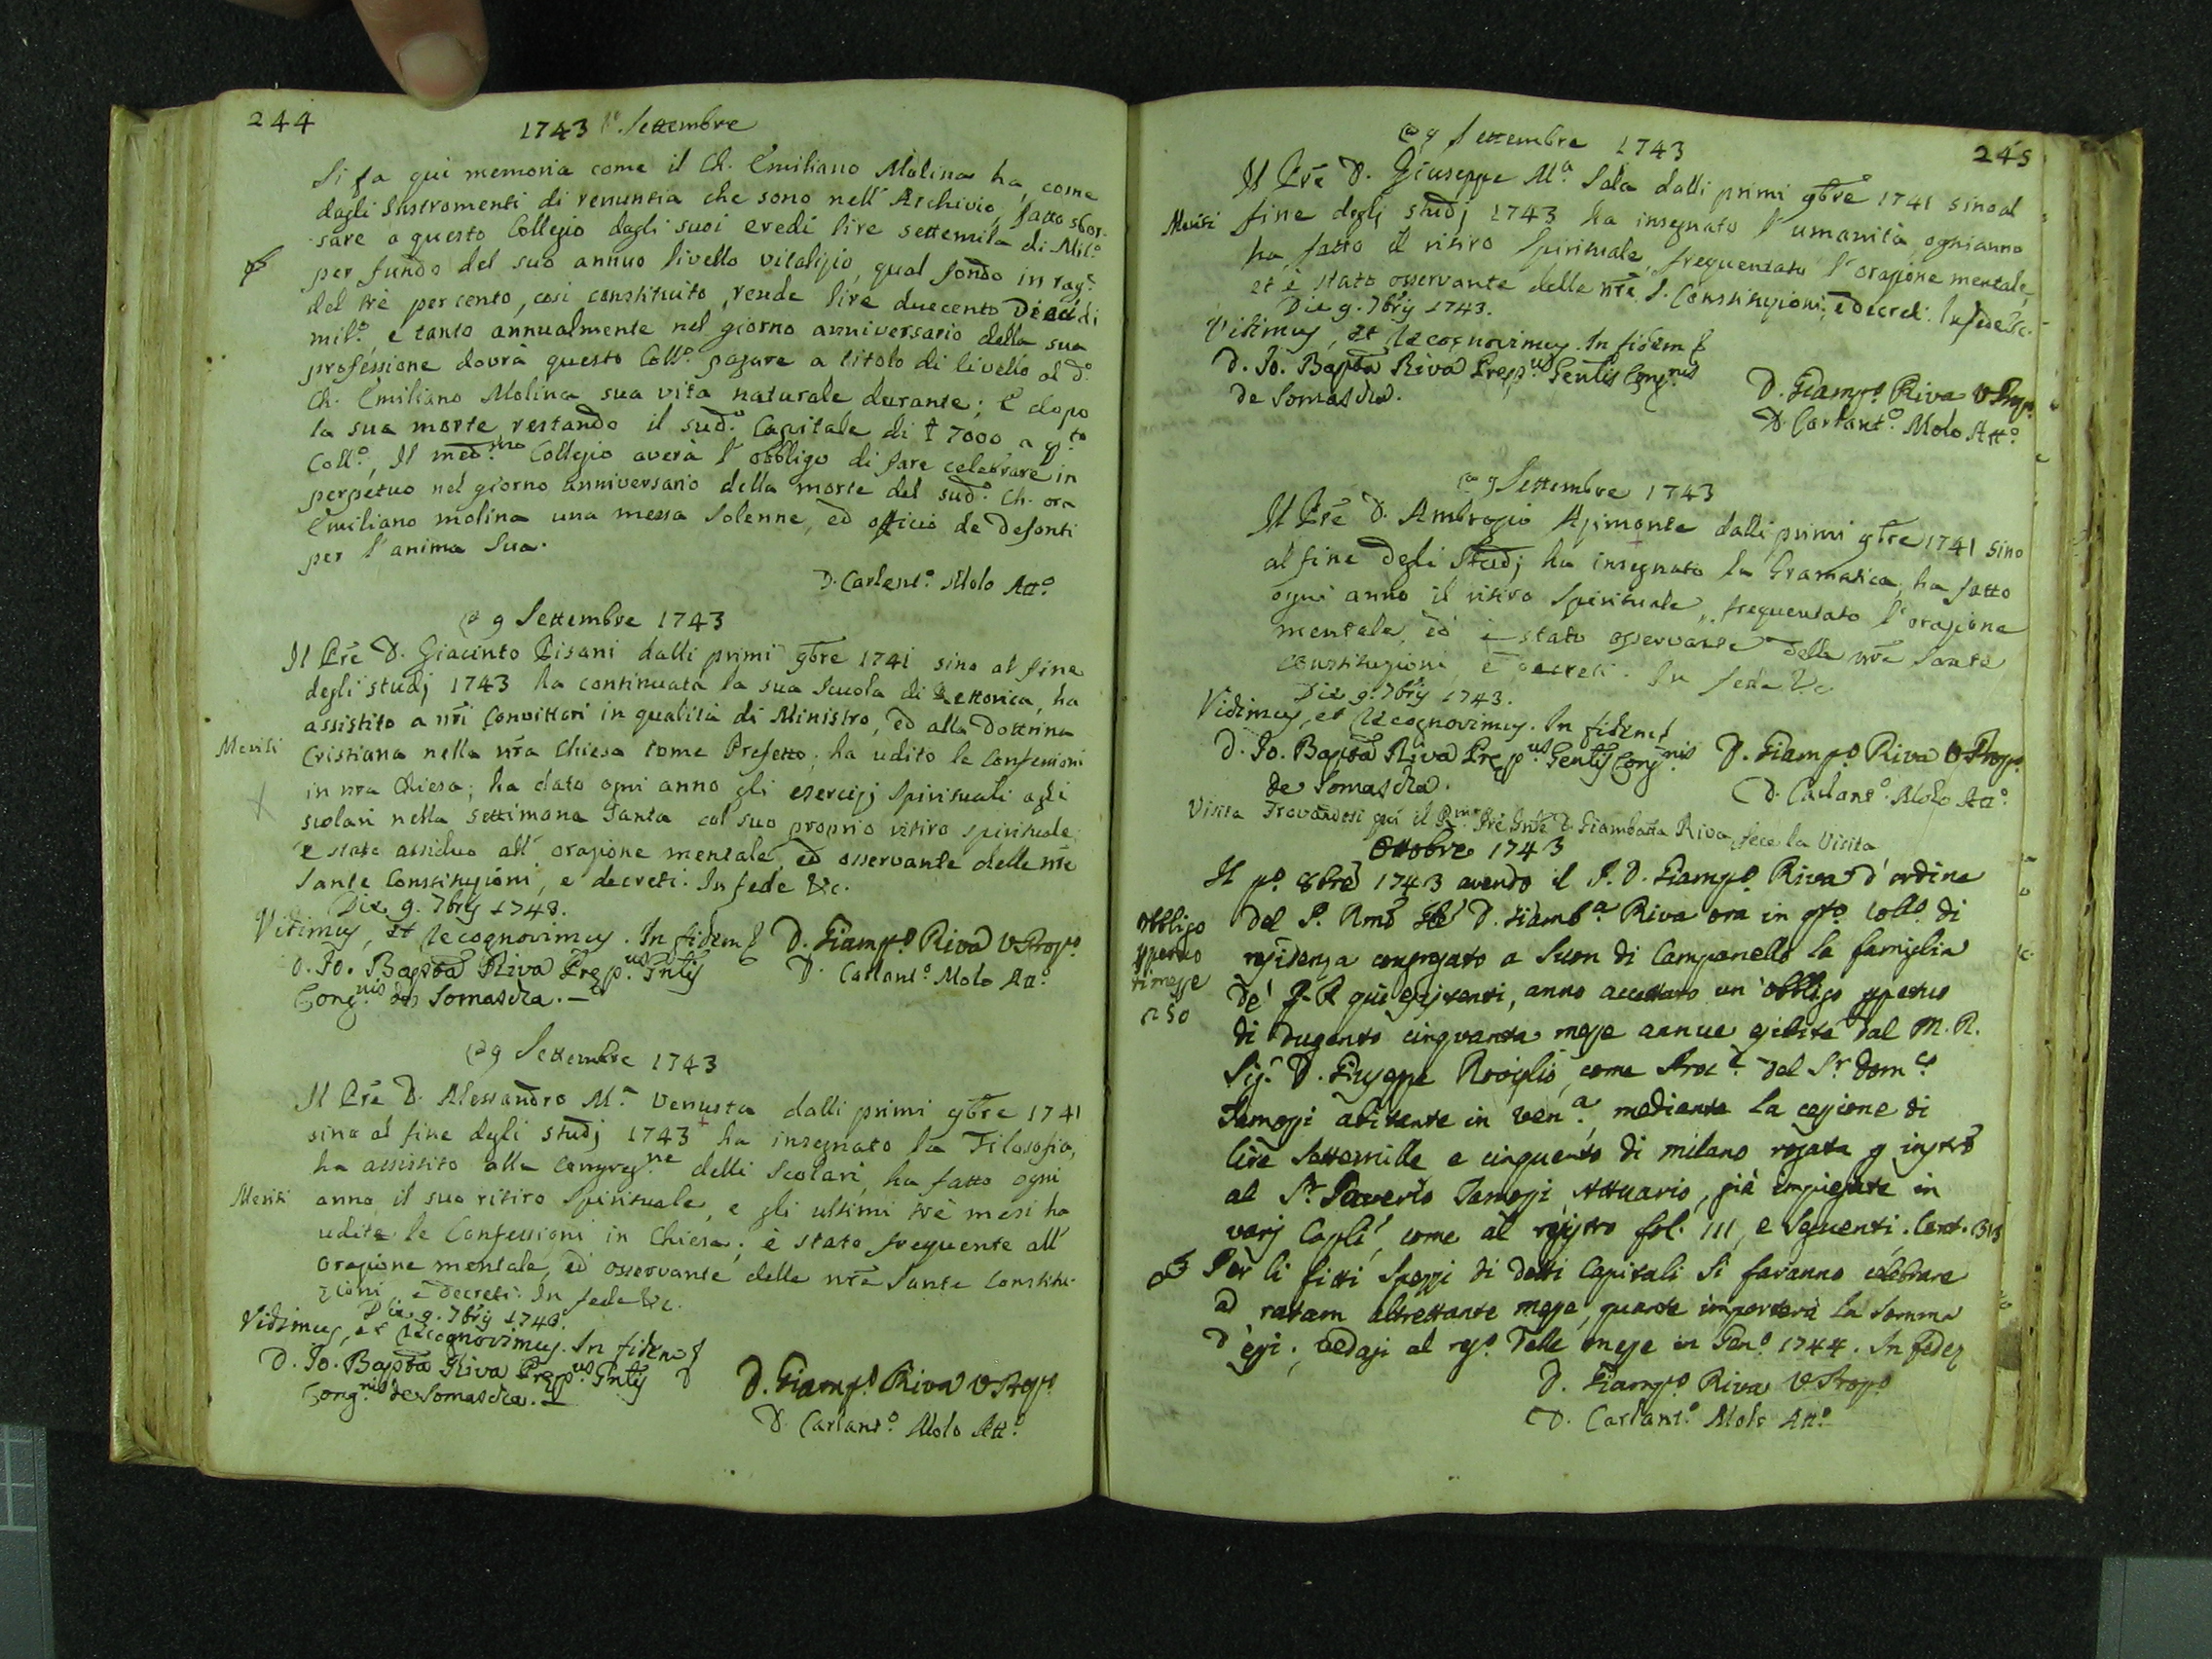 244
1743 1º Settembre
Si fa qui memoria come il Ch. Emiliano Molina ha, come
dagli Instromenti di renuntia che sono nell'Archivio, fatto sbor-
sare a questo Collegio dagli suoi eredi lire settemila di Milº
per fundo del suo annuo livello vitalizio, qual fondo in ragº
del trè per cento, così constituito, rende lire duecento Dieci di
milº, e tanto annualmente nel giorno anniversario della sua
professione dovrà questo Collº pagare a titolo di livello al dº
Ch. Emiliano Molina sua vita naturale durante; E dopo
la sua morte restando il sudº Capitale di £ 7000 a qto
Collº, Il medmo Collegio averà l'obbligo di fare celebrare in
perpetuo nel giorno anniversario della morte del sudº Ch. ora
Emiliano molina una messa Solenne, ed officio de Defonti
per l'anima Sua.
D. Carlantº Molo Attº
@ 9 Settembre 1743
Il Pre D. Giacinto Pisani dalli primi 9bre 1741 sino al fine
degli studj 1743 ha continuata la sua Scuola di Rettorica, ha
assistito a nri Convittori in qualità di Ministro, ed alla Dottrina
Meriti
Cristiana nella nra Chiesa come Prefetto; ha udito le Confessioni
in nra Chiesa; ha dato ogni anno gli esercizj Spirituali agli
scolari nella Settimana Santa col suo proprio ritiro spirituale
è stato assiduo all'orazione mentale, ed osservante delle nre
Sante Constituzioni, e decreti. In fede &c.
Die 9. 7bris 1743.
Vidimus, et Recognovimus. In fidem
D. Jo. Bapta Riva Prep.us Gnlis
Cong.nis de Somascha.
D. Giampº Riva V. Propº
D. Carlantº Molo Attº
@ 9 Settembre 1743
Il Pre D. Alessandro Mª Venusta dalli primi 9bre 1741
sino al fine degli studj 1743 ha insegnato la Filosofia,
ha assistito alla Congregne delli Scolari, ha fatto ogni
Meriti
anno il suo ritiro Spirituale, e gli ultimi trè mesi ha
udite le Confessioni in Chiesa; è stato frequente all'
orazione mentale, ed osservante delle nre Sante Constitu-
zioni, e decreti. In fede &c.
Die 9. 7bris 1743.
Vidimus, et Recognovimus. In fidem
D. Jo. Bapta Riva Prep.us Gnlis
Cong.nis de Somascha.
D. Giampº Riva V. Propº
D. Carlantº Molo Attº
245
@ 9 Settembre 1743
Il Pre D. Giuseppe Mª Sala dalli primi 9bre 1741 sino al
Meriti
fine degli studj 1743 ha insegnato l'umanità, ogni anno
ha fatto il ritiro Spirituale, frequentato l'orazione mentale,
et è stato osservante delle nre S. Constituzioni, e decreti. In fede &c.
Die 9. 7bris 1743.
Vidimus, et Recognovimus. In fidem
D. Jo. Bapta Riva Prep.us Genlis Cong.nis
de Somascha.
D. Giampº Riva V. Propº
D. Carlantº Molo Attº
@ 9 Settembre 1743
Il Pre D. Ambrogio Apimonte dalli primi 9bre 1741 sino
al fine degli Studj ha insegnato la Gramatica, ha fatto
ogni anno il ritiro Spirituale, frequentato l'orazione
mentale, ed è stato osservante delle nre Sante
Constituzioni, e decreti. In fede &c.
Die 9. 7bris 1743.
Vidimus, et Recognovimus. In fidem
D. Jo. Bapta Riva Prep.us Genlis Cong.nis
de Somascha.
D. Giampº Riva V. Propº
D. Carlantº Molo Attº
Visita
Trovandosi qui il Rmo Pre Gnle D. Giambatta Riva, fece la Visita
Ottobre 1743
Il pº 8bre 1743 avendo il P. D. Giampº Riva d'ordine
Obbligo
ppetuo
di messe
250
del P. Rmo Gle D. Giambª Riva ora in qto Collº di
residenza congregato a Suon di Campanello la famiglia
de' P. P. qui esistenti, anno accettato un obbligo ppetuo
di dugento cinquanta messe annue esibite dal M. R.
Sigr D. Giuseppe Roviglio, come Procre del Sr Domco
Tamossi abitante in Venª, mediante la cessione di
lire Settemille e cinquecento di milano rogata p instro
al Sr Saverio Tamossi Attuario, già impiegate in
varj Capli, come al registro fol. 111, e Seguenti. Cart. 313
Per li fitti Spezzi di detti Capitali si faranno celebrare
ad ratam altrettante messe, quante importerà la Somma
d'essi; vedasi al rgº delle messe in Genº 1744. In fede
D. Giampº Riva V. Propº
D. Carlantº Molo Attº